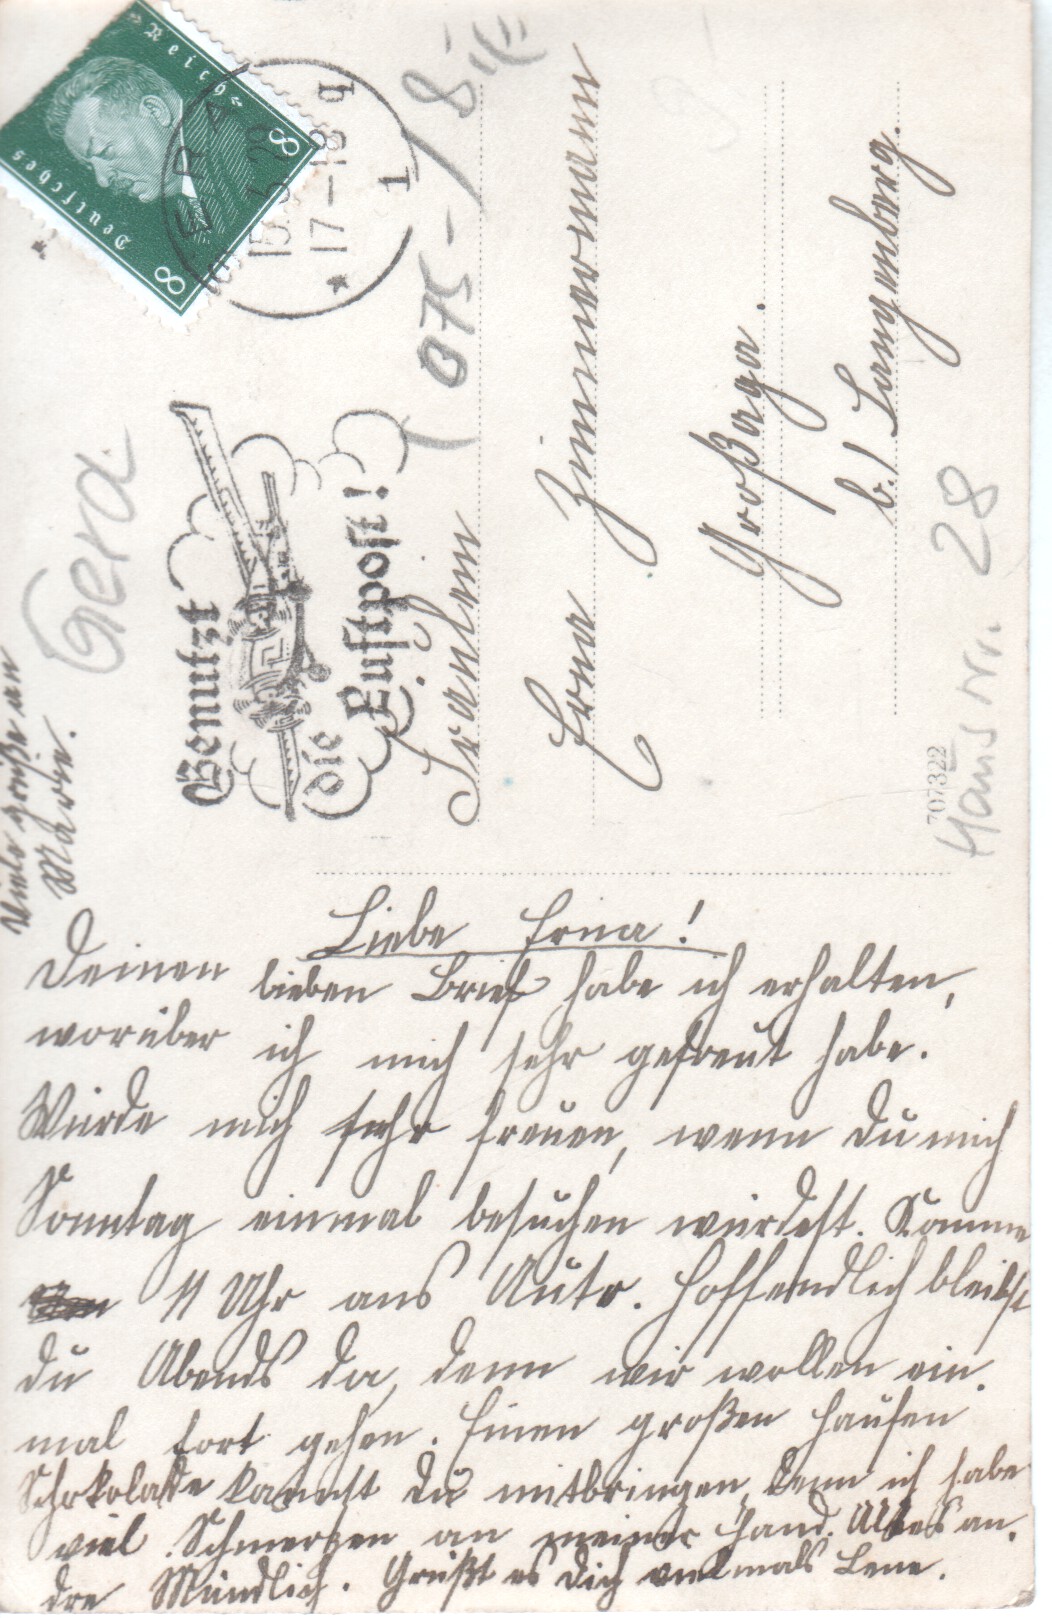 Deutsches Reich
8
8
GERA
15.3.29
17-18
1
q
Benutzt
die
Luftpost!
Gera
075-/8
Fräulein
Erna Zimmermann
Großaga.
b./ Langenberg.
Haus Nr. 28
707322
Viele Grüße an
Marie.
Liebe Erna!
Deinen lieben Brief habe ich erhalten,
worüber ich mich sehr gefreut habe.
Würde mich sehr freuen, wenn Du mich
Sonntag einmal besuchen würdest. Komme
11 Uhr ans Auto. Hoffendlich bleibst
du Abends da, denn wir wollen ein-
mal fort gehen. Einen großen Haufen
Schokolade kannst Du mitbringen, denn ich habe
viel Schmerzen an meiner Hand. Alles an-
dre Mündlich. Grüßt es Dich vielmals Lene.